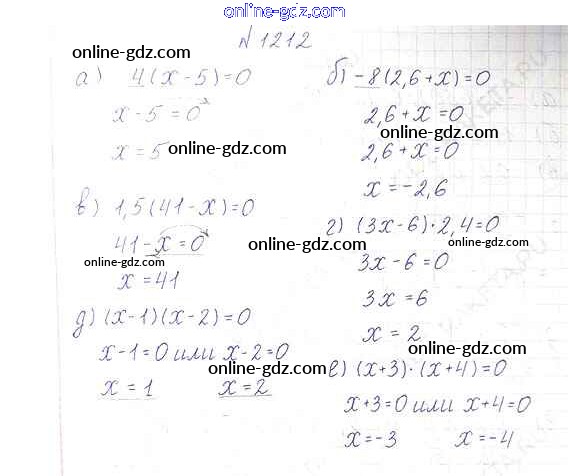 online-gdz.com
N 1212
online-gdz.com
а) 4(x-5)=0
x-5=0
x=5 online-gdz.com
б) -8(2,6+x)=0
2,6+x=0
online-gdz.com
2,6+x=0
online-gdz.com
x=-2,6
в) 1,5(41-x)=0
41-x=0 online-gdz.com
online-gdz.com
x=41
г) (3x-6)·2,4=0
online-gdz.com
3x-6=0
3x=6
x=2
online-gdz.com
д) (x-1)(x-2)=0
x-1=0 или x-2=0
online-gdz.com
x=1 x=2
е) (x+3)·(x+4)=0
x+3=0 или x+4=0
x=-3 x=-4